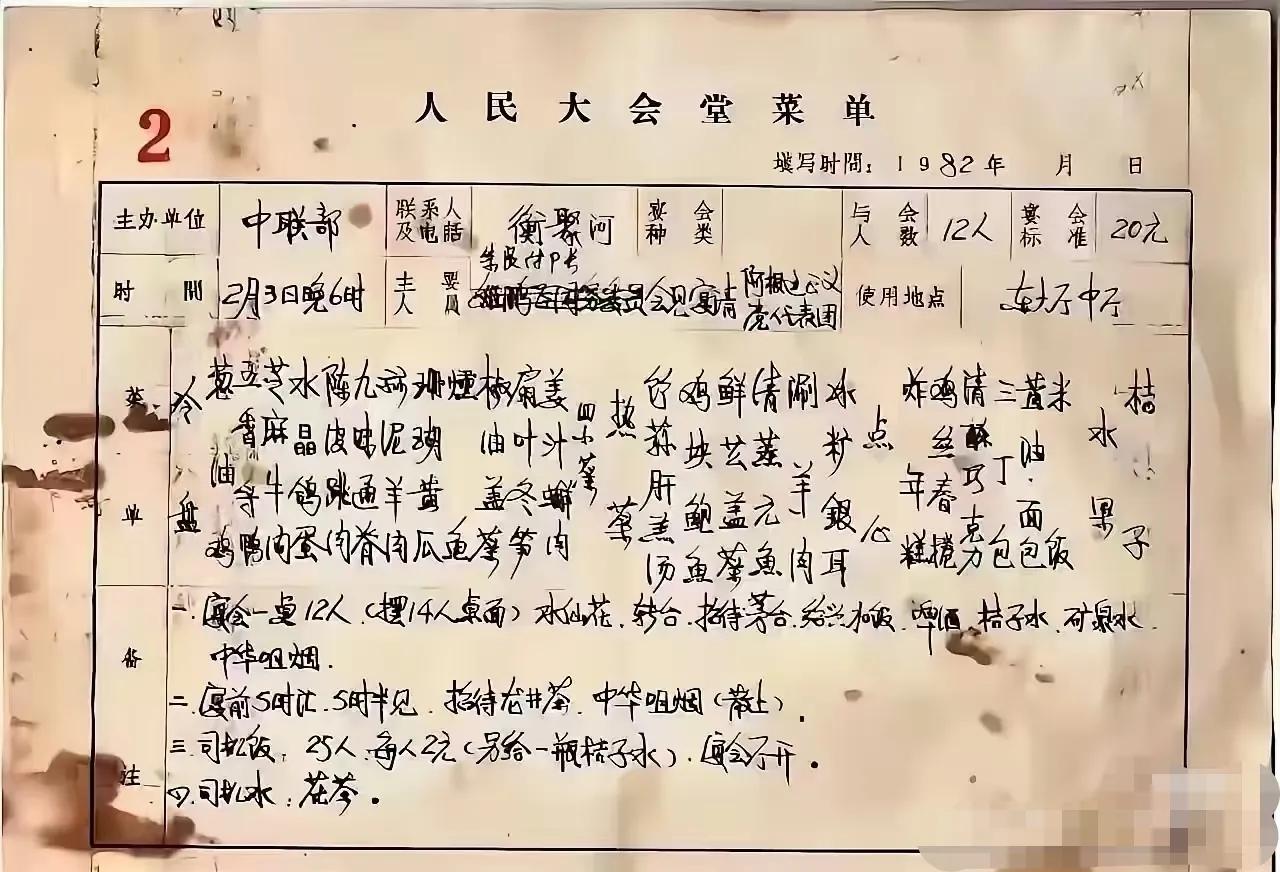 人民大会堂菜单
2
填写时間：1982年 月 日
主办单位 中联部 联系人及电话 衡聚河 宴会种类 与会人数 12人 宴会标准 20元
时間 2月3日晚6时 主要人員 会见宴请 党代表团 使用地点 东大厅中厅
菜单
冷盘
葱油鸡
五香鸭
芝麻牛肉
水晶鸽蛋
陈皮肉
九味通脊
蒜泥羊肉
珊瑚黄瓜
燻鱼
椒油盖菜
扇叶冬笋
姜汁肉
四小菜
热菜
竹荪肝羔汤
鸡块鲍鱼
鲜盖菜
清蒸元魚
涮羊肉
冰銀耳
点心
炸年糕
鸡丝春捲
清酥巧克力
三丁包
黄油面包
米饭
水果
桔子
备注
一.宴会一桌12人（摆14人桌面）水仙花.转台.招待茅台.绍兴.啤酒.桔子水.矿泉水.
中华咀烟.
二.宴前5时汇.5时半见.招待龙井茶.中华咀烟（带上）.
三.司机饭：25人.每人2元（另给一瓶桔子水）.宴会厅开。
四.司机水：花茶。